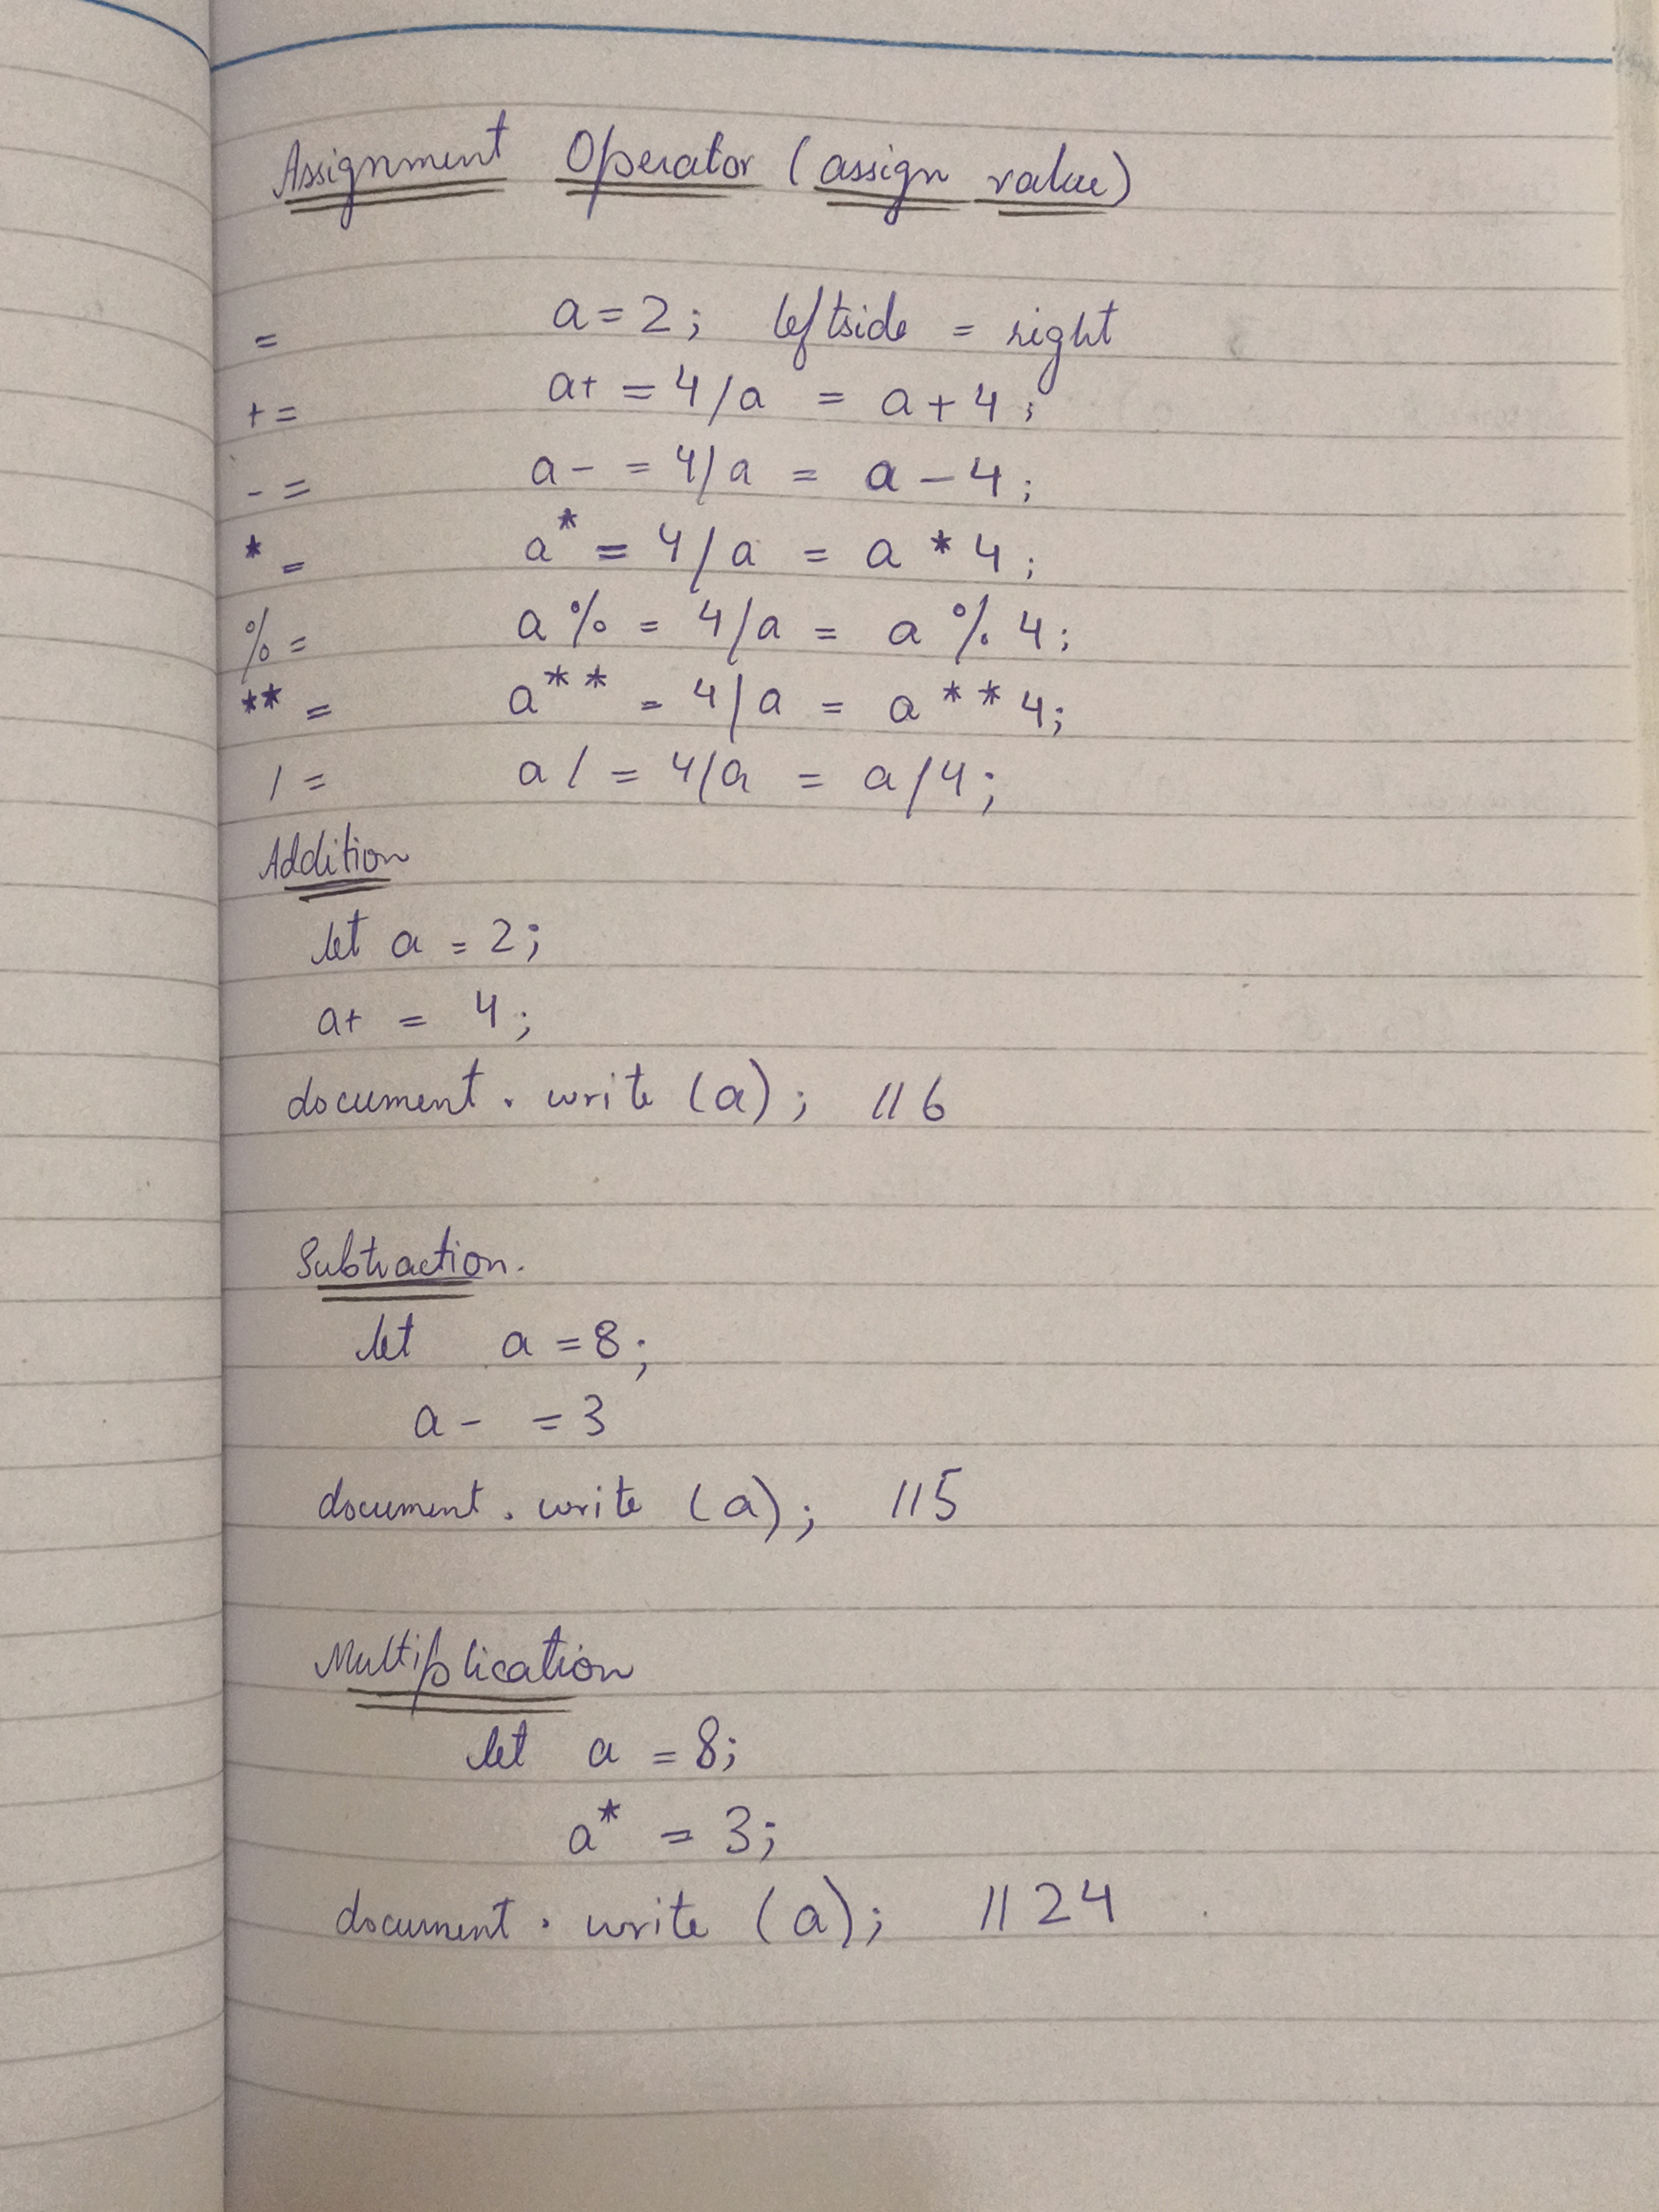 Assignment Operator (assign value)
= a = 2; leftside = right
+ = a+ = 4/a = a + 4;
- = a- = 4/a = a - 4;
* = a* = 4/a = a * 4;
% = a% = 4/a = a % 4;
** = a** = 4/a = a ** 4;
/ = a / = 4/a = a/4;
Addition
let a = 2;
a+ = 4;
document.write (a); //6
Subtraction.
let a = 8;
a- = 3
document.write (a); //5
Multiplication
let a = 8;
a* = 3;
document.write (a); //24